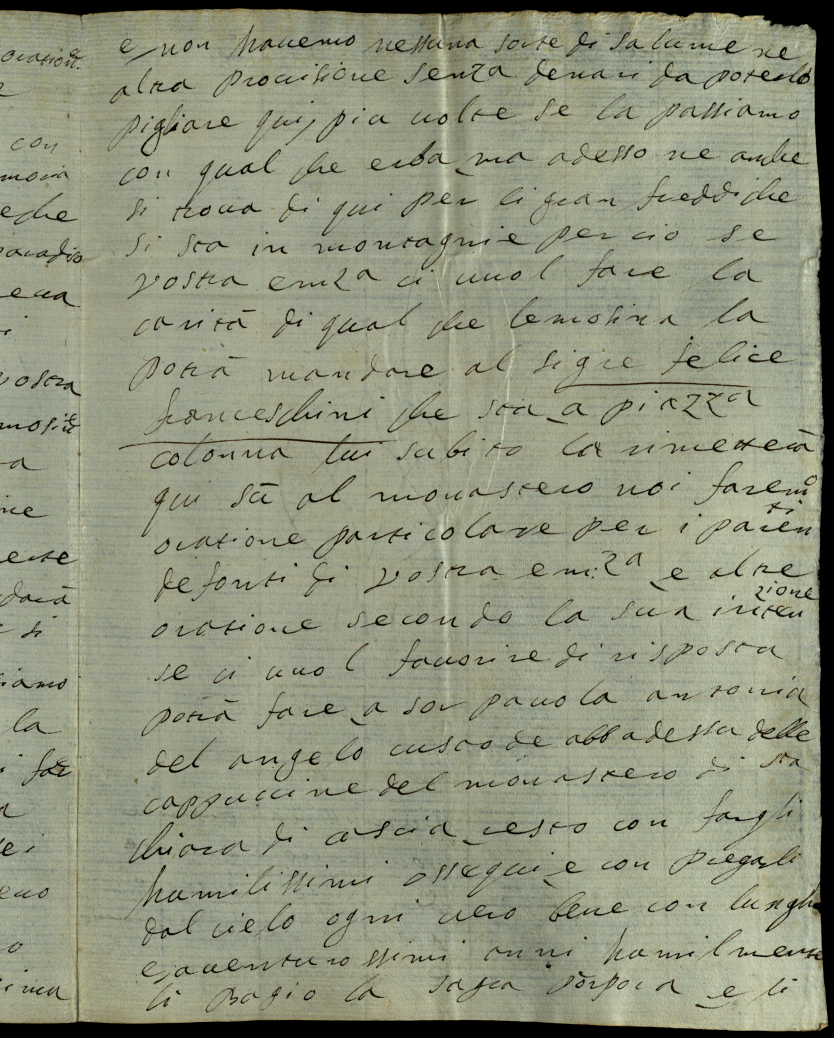 oration.
con
moria
e che
paradiso
vostra
la
ne
si
siamo
la
e non havemo nessuna sorte di salume ne
altra provisione senza denari da poterlo
pigliare qui, piu volte se la passiamo
con qual che erba ma adesso ne anche
si trova di qui per li gran freddi che
si sta in montagnie per cio se
vostra emza ci vuol fare la
carità di qual che lemosina la
potrà mandare al sigre felice
franceschini che sta a piazza
colonna lui subito la rimetterà
qui sù al monastero noi farem̃o
oratione particolare per i parenti
defonti di vostra em:za e altre
oratione secondo la sua intenzione
se ci vuol favorire di risposta
potrà fare a sor pauola antonia
del angelo custode abbadessa delle
cappuccine del monastero di sta
chiara di cascia resto con fargli
humilissimi ossequi e con pregarli
dal cielo ogni vero bene con lunghi
e aventurossimi anni humilmente
li bagio la sagra porpora e li